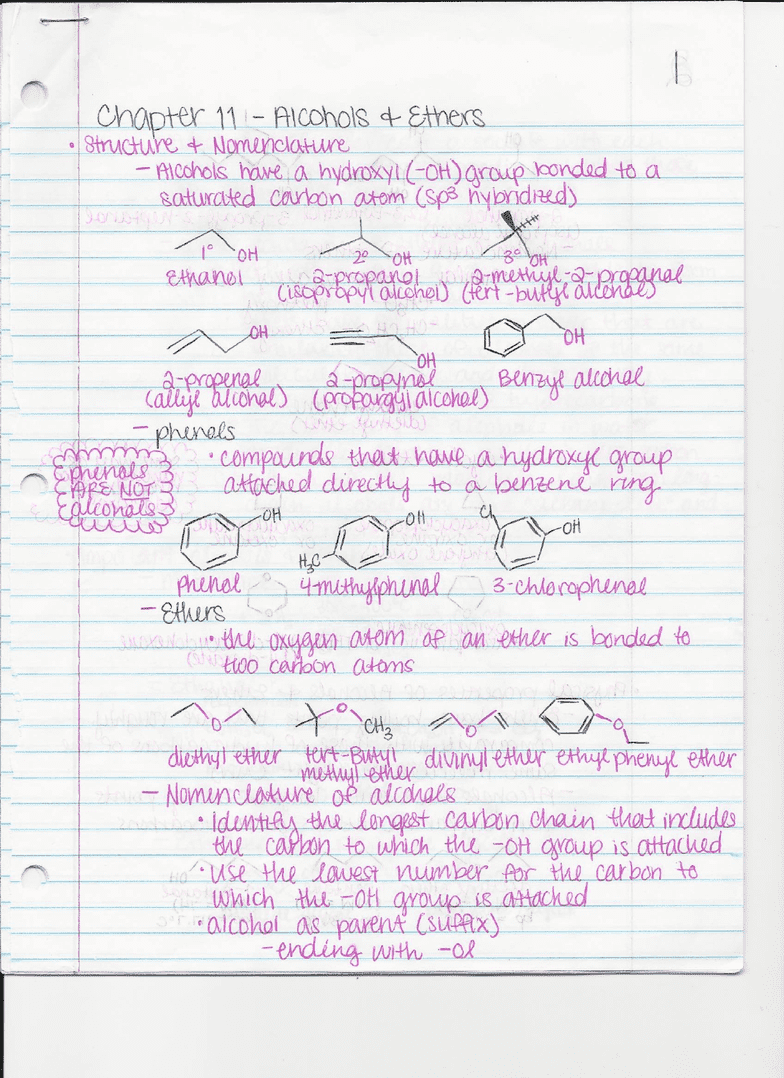 1
Chapter 11 - Alcohols & Ethers
• Structure & Nomenclature
- Alcohols have a hydroxyl (-OH) group bonded to a
saturated carbon atom (sp3 hybridized)
1° OH 2° OH 3° OH
Ethanol 2-propanol 2-methyl-2-propanol
(isopropyl alcohol) (tert-butyl alcohol)
OH OH OH
2-propenol 2-propynol Benzyl alcohol
(allyl alcohol) (propargyl alcohol)
- phenols
phenols
ARE NOT
alcohols
• compounds that have a hydroxyl group
attached directly to a benzene ring
OH OH Cl OH
H3C
phenol 4-methylphenol 3-chlorophenol
- Ethers
• the oxygen atom of an ether is bonded to
two carbon atoms
O O CH3 O O
diethyl ether tert-Butyl divinyl ether ethyl phenyl ether
methyl ether
- Nomenclature of alcohols
• Identify the longest carbon chain that includes
the carbon to which the -OH group is attached
• Use the lowest number for the carbon to
which the -OH group is attached
• alcohol as parent (suffix)
- ending with -ol